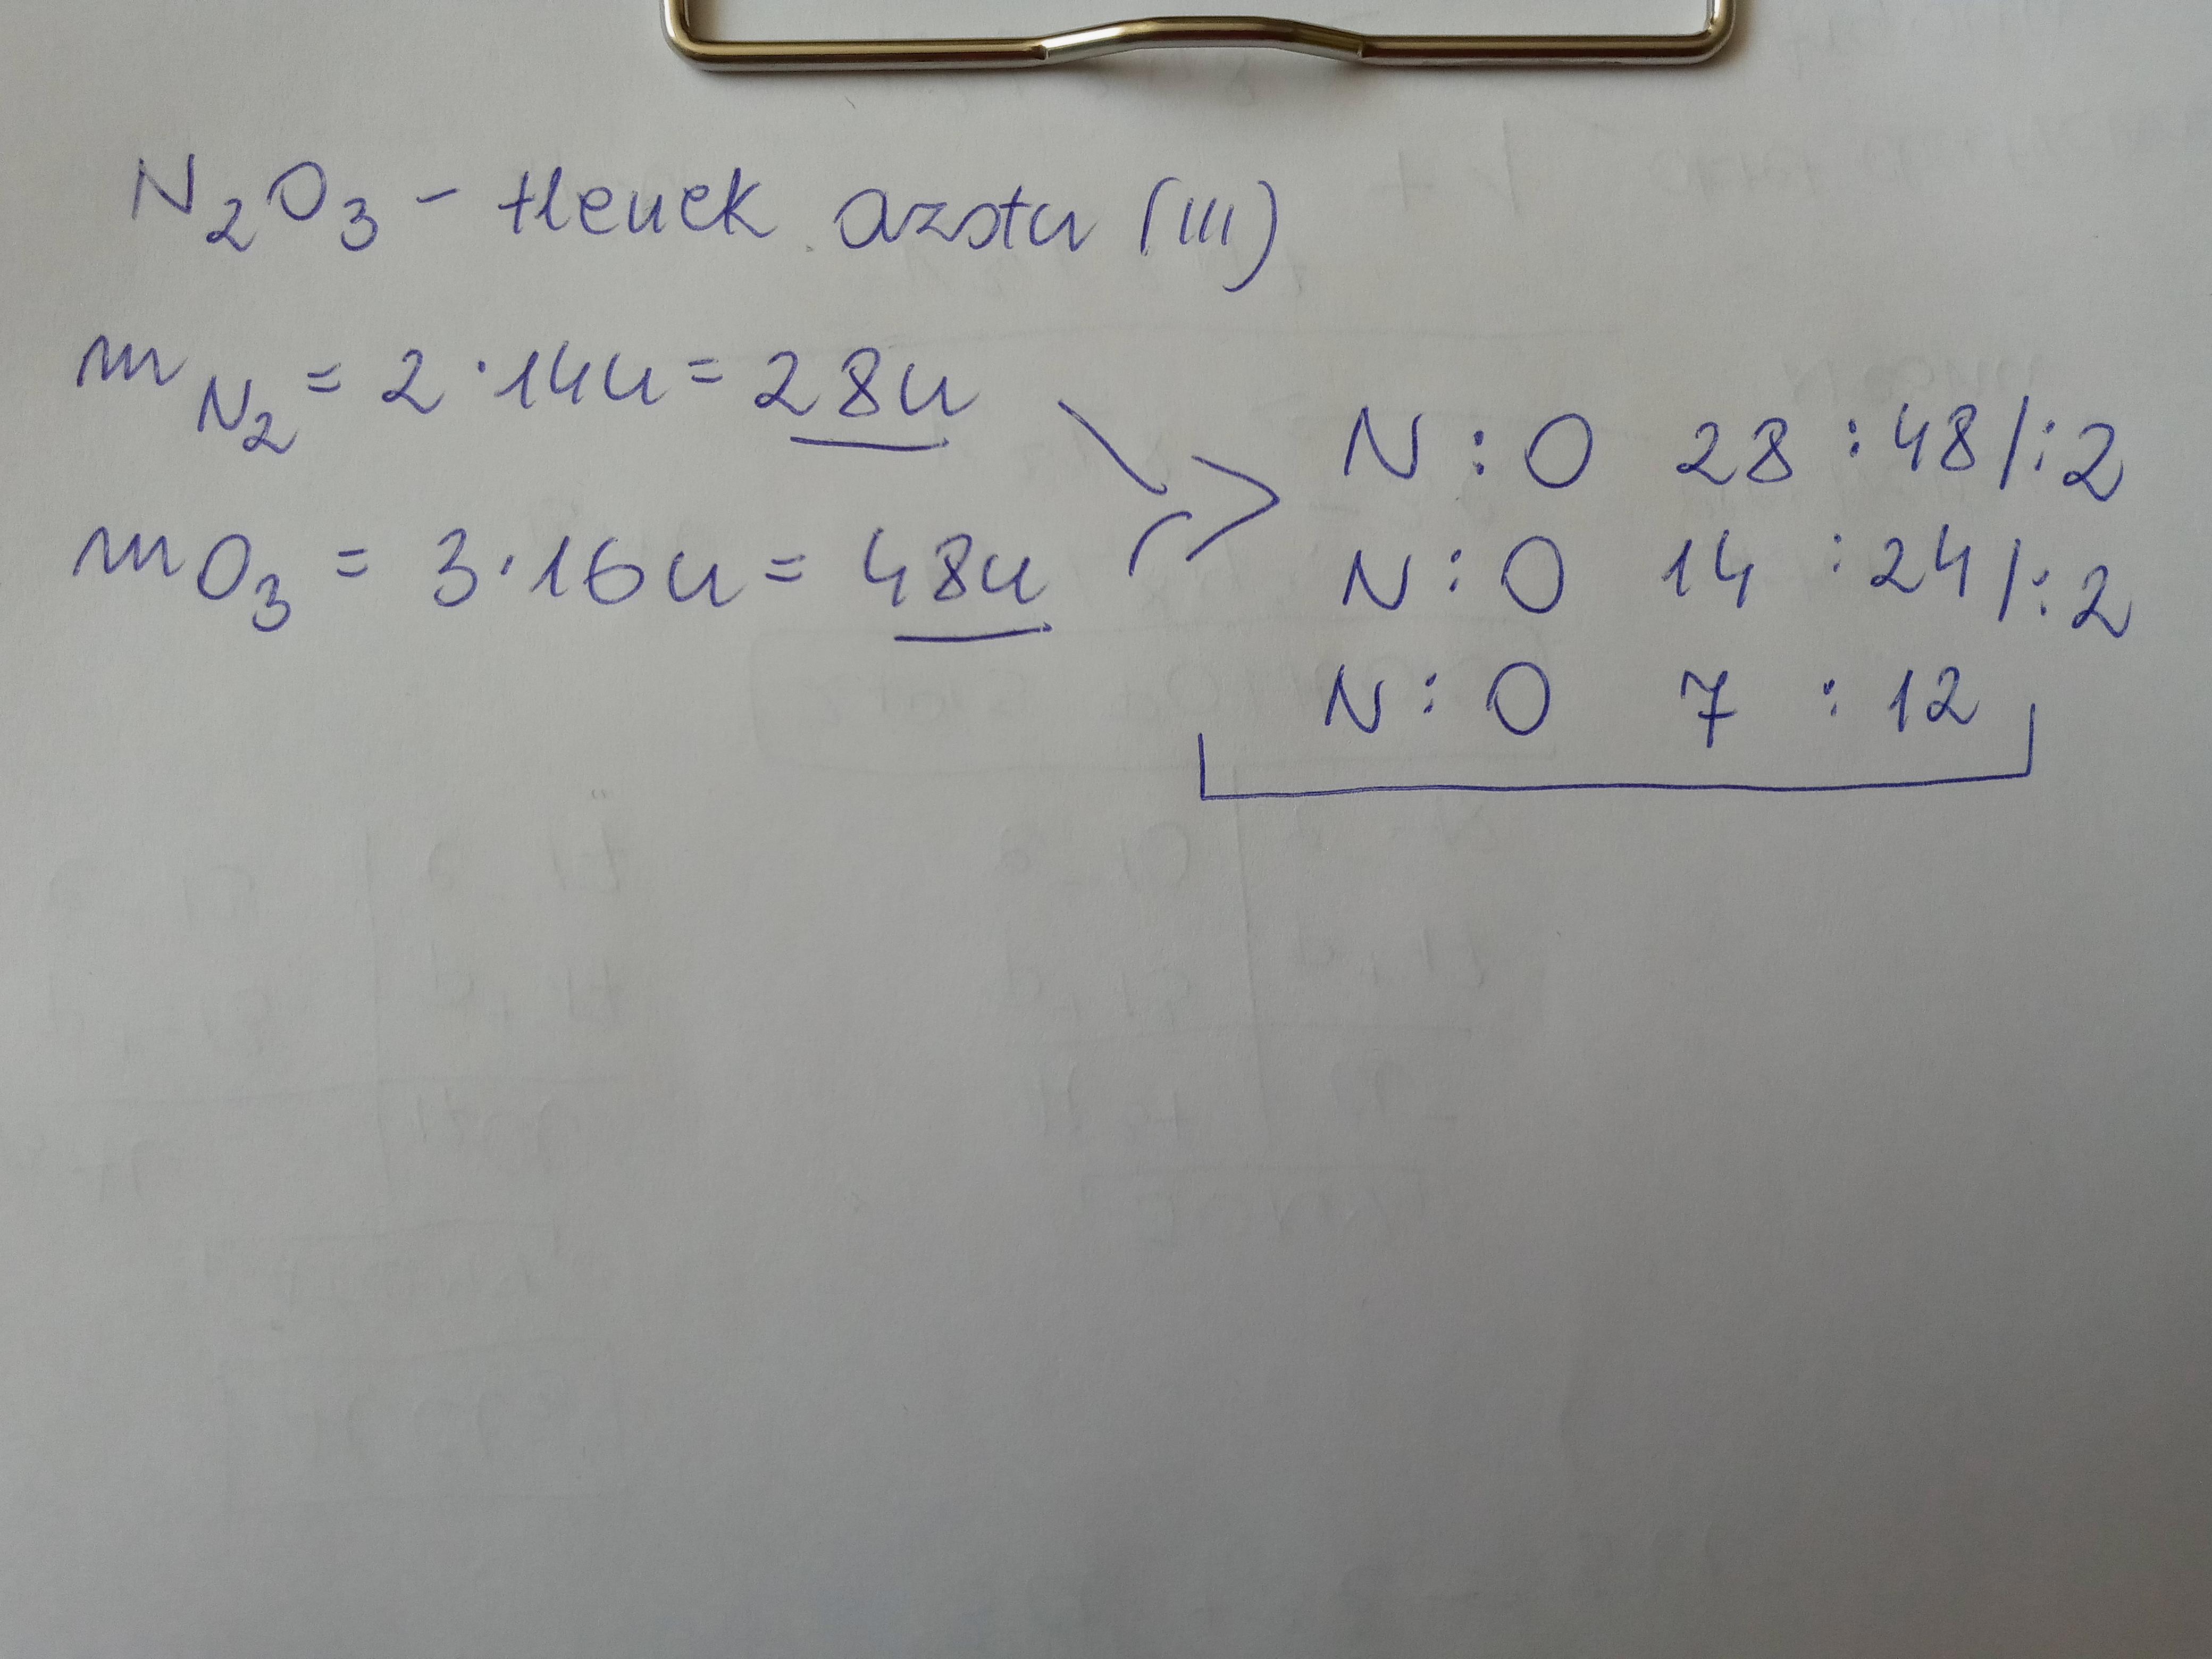 N₂O₃ - tlenek azotu (III)
mN₂ = 2 · 14u = 28u
mO₃ = 3 · 16u = 48u
N : O 28 : 48 /: 2
N : O 14 : 24 /: 2
N : O 7 : 12